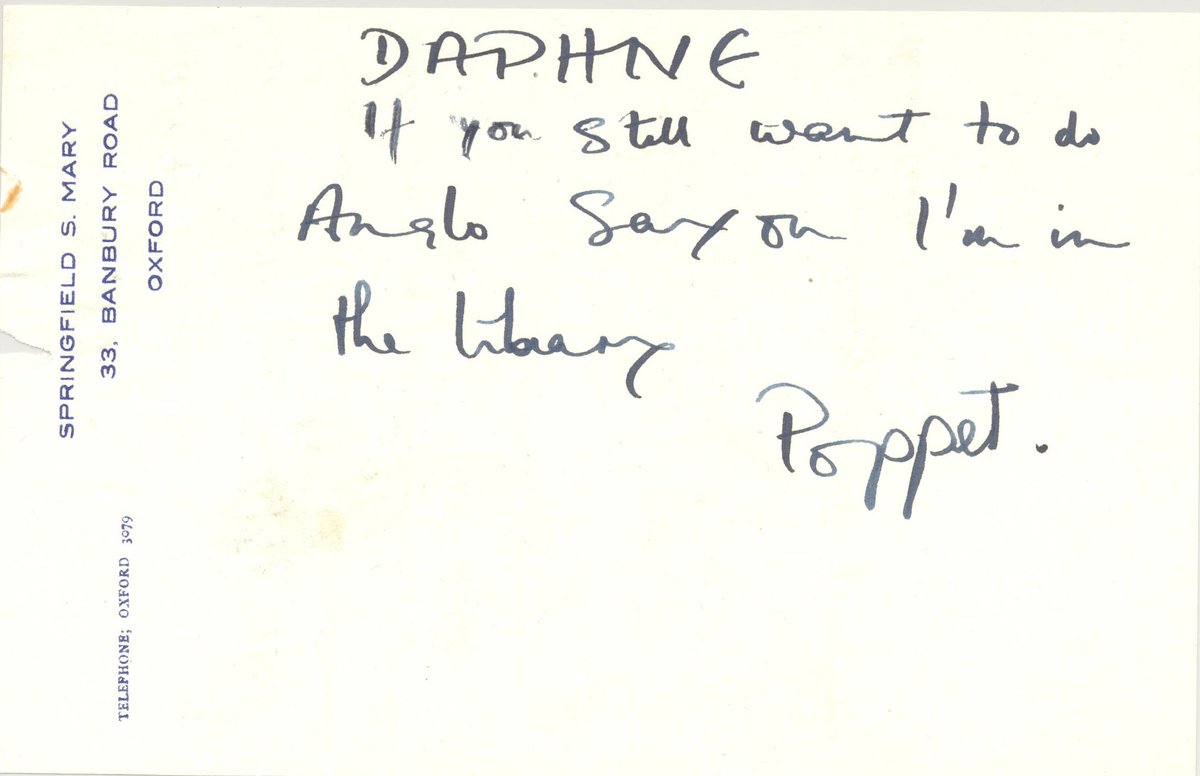 SPRINGFIELD S. MARY
33, BANBURY ROAD
OXFORD
TELEPHONE; OXFORD 3079
DAPHNE
If you still want to do
Anglo Saxon I'm in
the library
Poppet.